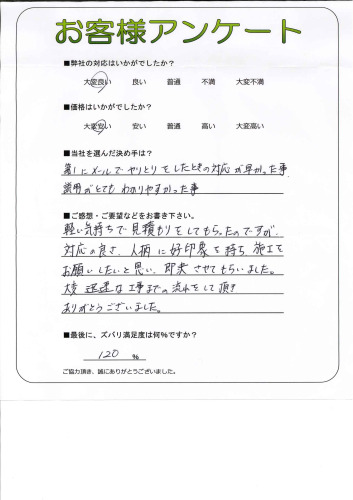 お客様アンケート
■弊社の対応はいかがでしたか?
大変良い 良い 普通 不満 大変不満
■価格はいかがでしたか?
大変安い 安い 普通 高い 大変高い
■当社を選んだ決め手は?
第1にメールでやりとりをしたときの対応が早かった事
説明がとてもわかりやすかった事
■ご感想・ご要望などをお書き下さい。
軽い気持ちで見積もりをしてもらったのですが、
対応の良さ、人柄に好印象を持ち、施工を
お願いしたいと思い、即決させてもらいました。
大変迅速な工事までの流れをして頂き
ありがとうございました。
■最後に、ズバリ満足度は何%ですか?
120 %
ご協力頂き、誠にありがとうございました。